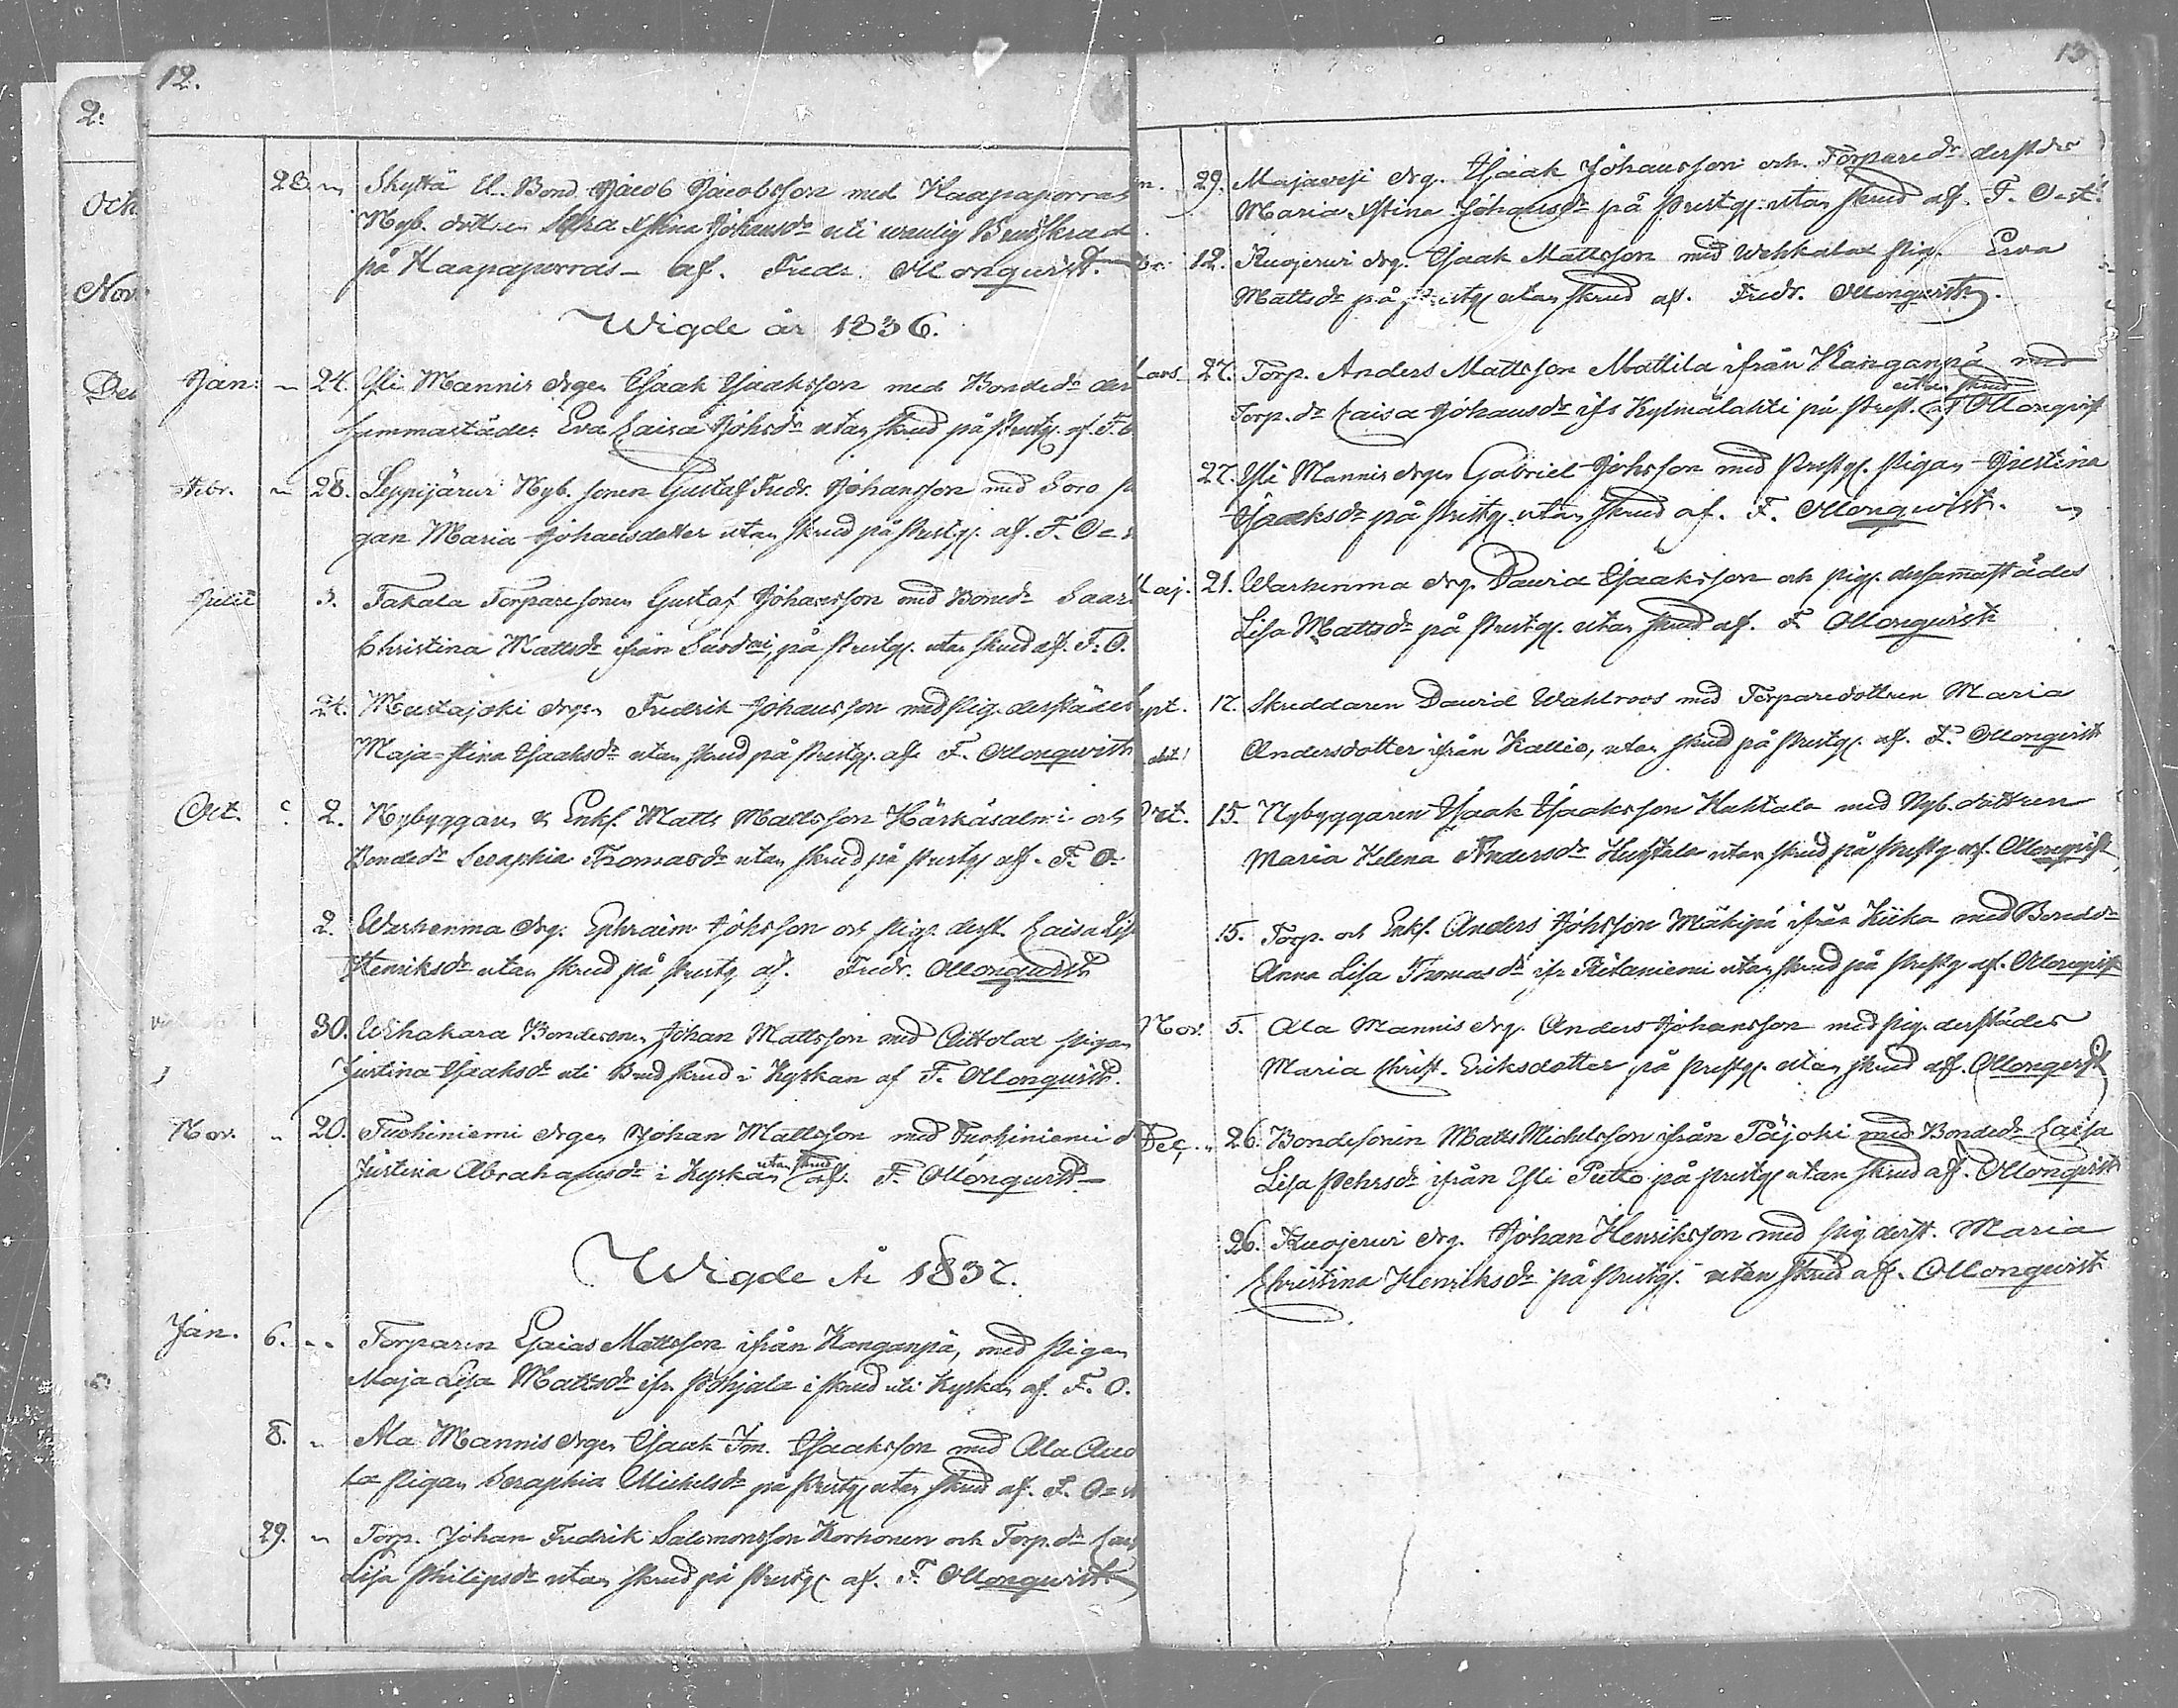 12.
2.
Och
Nov
Dec
28. Skyttä El. Bond. Jacob Jacobsson med Haapaporras
Nyb. dottren Stina Johansdr uti vanlig Brudskrud
på Haapaporras af. Fredr. Ollonqwist.
Wigde år 1836.
Jan: 24. Yli Mannis drgen Isaak Isaaksson med Bondedr der
sammastädes Eva Caisa Johsdr utan skrud på Prestg. af. F. O
Febr. 28. Leppijärvi Nyb. sonen Gustaf Fredr. Johansson med Soro pi
gan Maria Johansdotter utan skrud på Prestg. af. F. O=
Julii 3. Takala Torparesonen Gustaf Johansson med Bonddr Saar
Christina Mattsdr ifrån på Prestg. utan skrud af. F. O.
24. Mustajoki drgen Fredrik Johansson med pig. derstädes
Maja Stina Isaaksdr utan skrud på Prestg. af F. Ollonqwist
Oct. 2. Nybyggaren & Enkl. Matts Mattsson Härkäsalmi och
Bondedr Seraphia Thomasdr utan skrud på Prestg af. F. O.
2. Warhenma drg. Ephraim Johsson och pig. derst. Caisa Lis
Henriksdr utan skrud på Prestg. af. Fredr. Ollonqwist
30. Wihakara Bondesonen Johan Mattsson med Aittolax pigan
Justina Isaaksdr uti Brudskrud i Kyrkan af F. Ollonqwist.
Nov. 20. Tuohiniemi drgen Johan Mattsson med Tuohiniemi d
utan skrud
Justina Abrahamsdr i Kyrkan af. F. Ollonqwist
Wigde År 1837.
Jan. 6. Torparen Esaias Mattsson ifrån Kanganpä, med Pigan
Maja Lisa Mattsdr ifr. Pohjala i skrud uti Kyrkan af. F. O.
8. Ala Mannis drgen Isaak Im. Isaaksson med Ala Auo
la Pigan Seraphia Michelsdr på Prestg utan skrud af. F. O=st
29. Torp. Johan Fredrik Salomonsson Korhonen och Torp. dr Cais
Lisa Philipsdr utan skrud på Prestg af. F. Ollonqwist
13
29. Majavesi drg. Isaak Johansson och Torparedr derstdes
Maria Stina Johansdr på Prestg. utan skrud af. F. O=st.
br. 12. Kuojervi drg. Isaak Mattsson med Wehkalax pig. Eva
Mattsdr på Prestg utan skrud af. Fredr. Ollonqwist.
ars 27. Torp. Anders Mattsson Mattila ifrån Kanganpä med
utan skrud
Torp. dr Caisa Johansdr ifr Kylmälahti på Prest. af Ollonqvist
27. Yli Mannis drgen Gabriel Johsson med Prestg. Pigan Justina
Isaaksdr på Prestg. utan skrud af. F. Ollonqwist.
aj. 21. Warhenma drg. David Isaaksson och pig. dersammastädes
Lisa Mattsdr på Prestg. utan skrud af. F. Ollonqwist
ept. 17. Skreddaren David Wahlroos med Torparedottren Maria
Andersdotter ifrån Kallio, utan skrud på Prestg. af. F. Ollonqvist
Oct. 15. Nybyggaren Isaak Isaaksson Huhtala med Nyb. dottren
Maria Helena Andersdr Huhtala utan skrud på Prestg. af. Ollonqvist
15. Torp. och Enkl. Anders Johsson Mäkipä ifrån Kiika med Bondedr
Anna Lisa Thomasdr ifr Riitaniemi utan skrud på Prestg af. Ollonqvist
Nov. 5. Ala Mannis drg. Anders Johansson med pig. derstädes
Maria Christ. Eriksdotter på Prestg. utan skrud af. Ollonqvist
Dec. 26. Bondesonen Matts Michelsson ifrån Päjoki med Bondedr Caisa
Lisa Pehrsdr ifrån Yli Petto på Prestg utan skrud af. Ollonqvist
26. Kuojervi drg. Johan Henriksson med pig derst. Maria
Christina Henriksdr på Prestg. utan skrud af. Ollonqwist